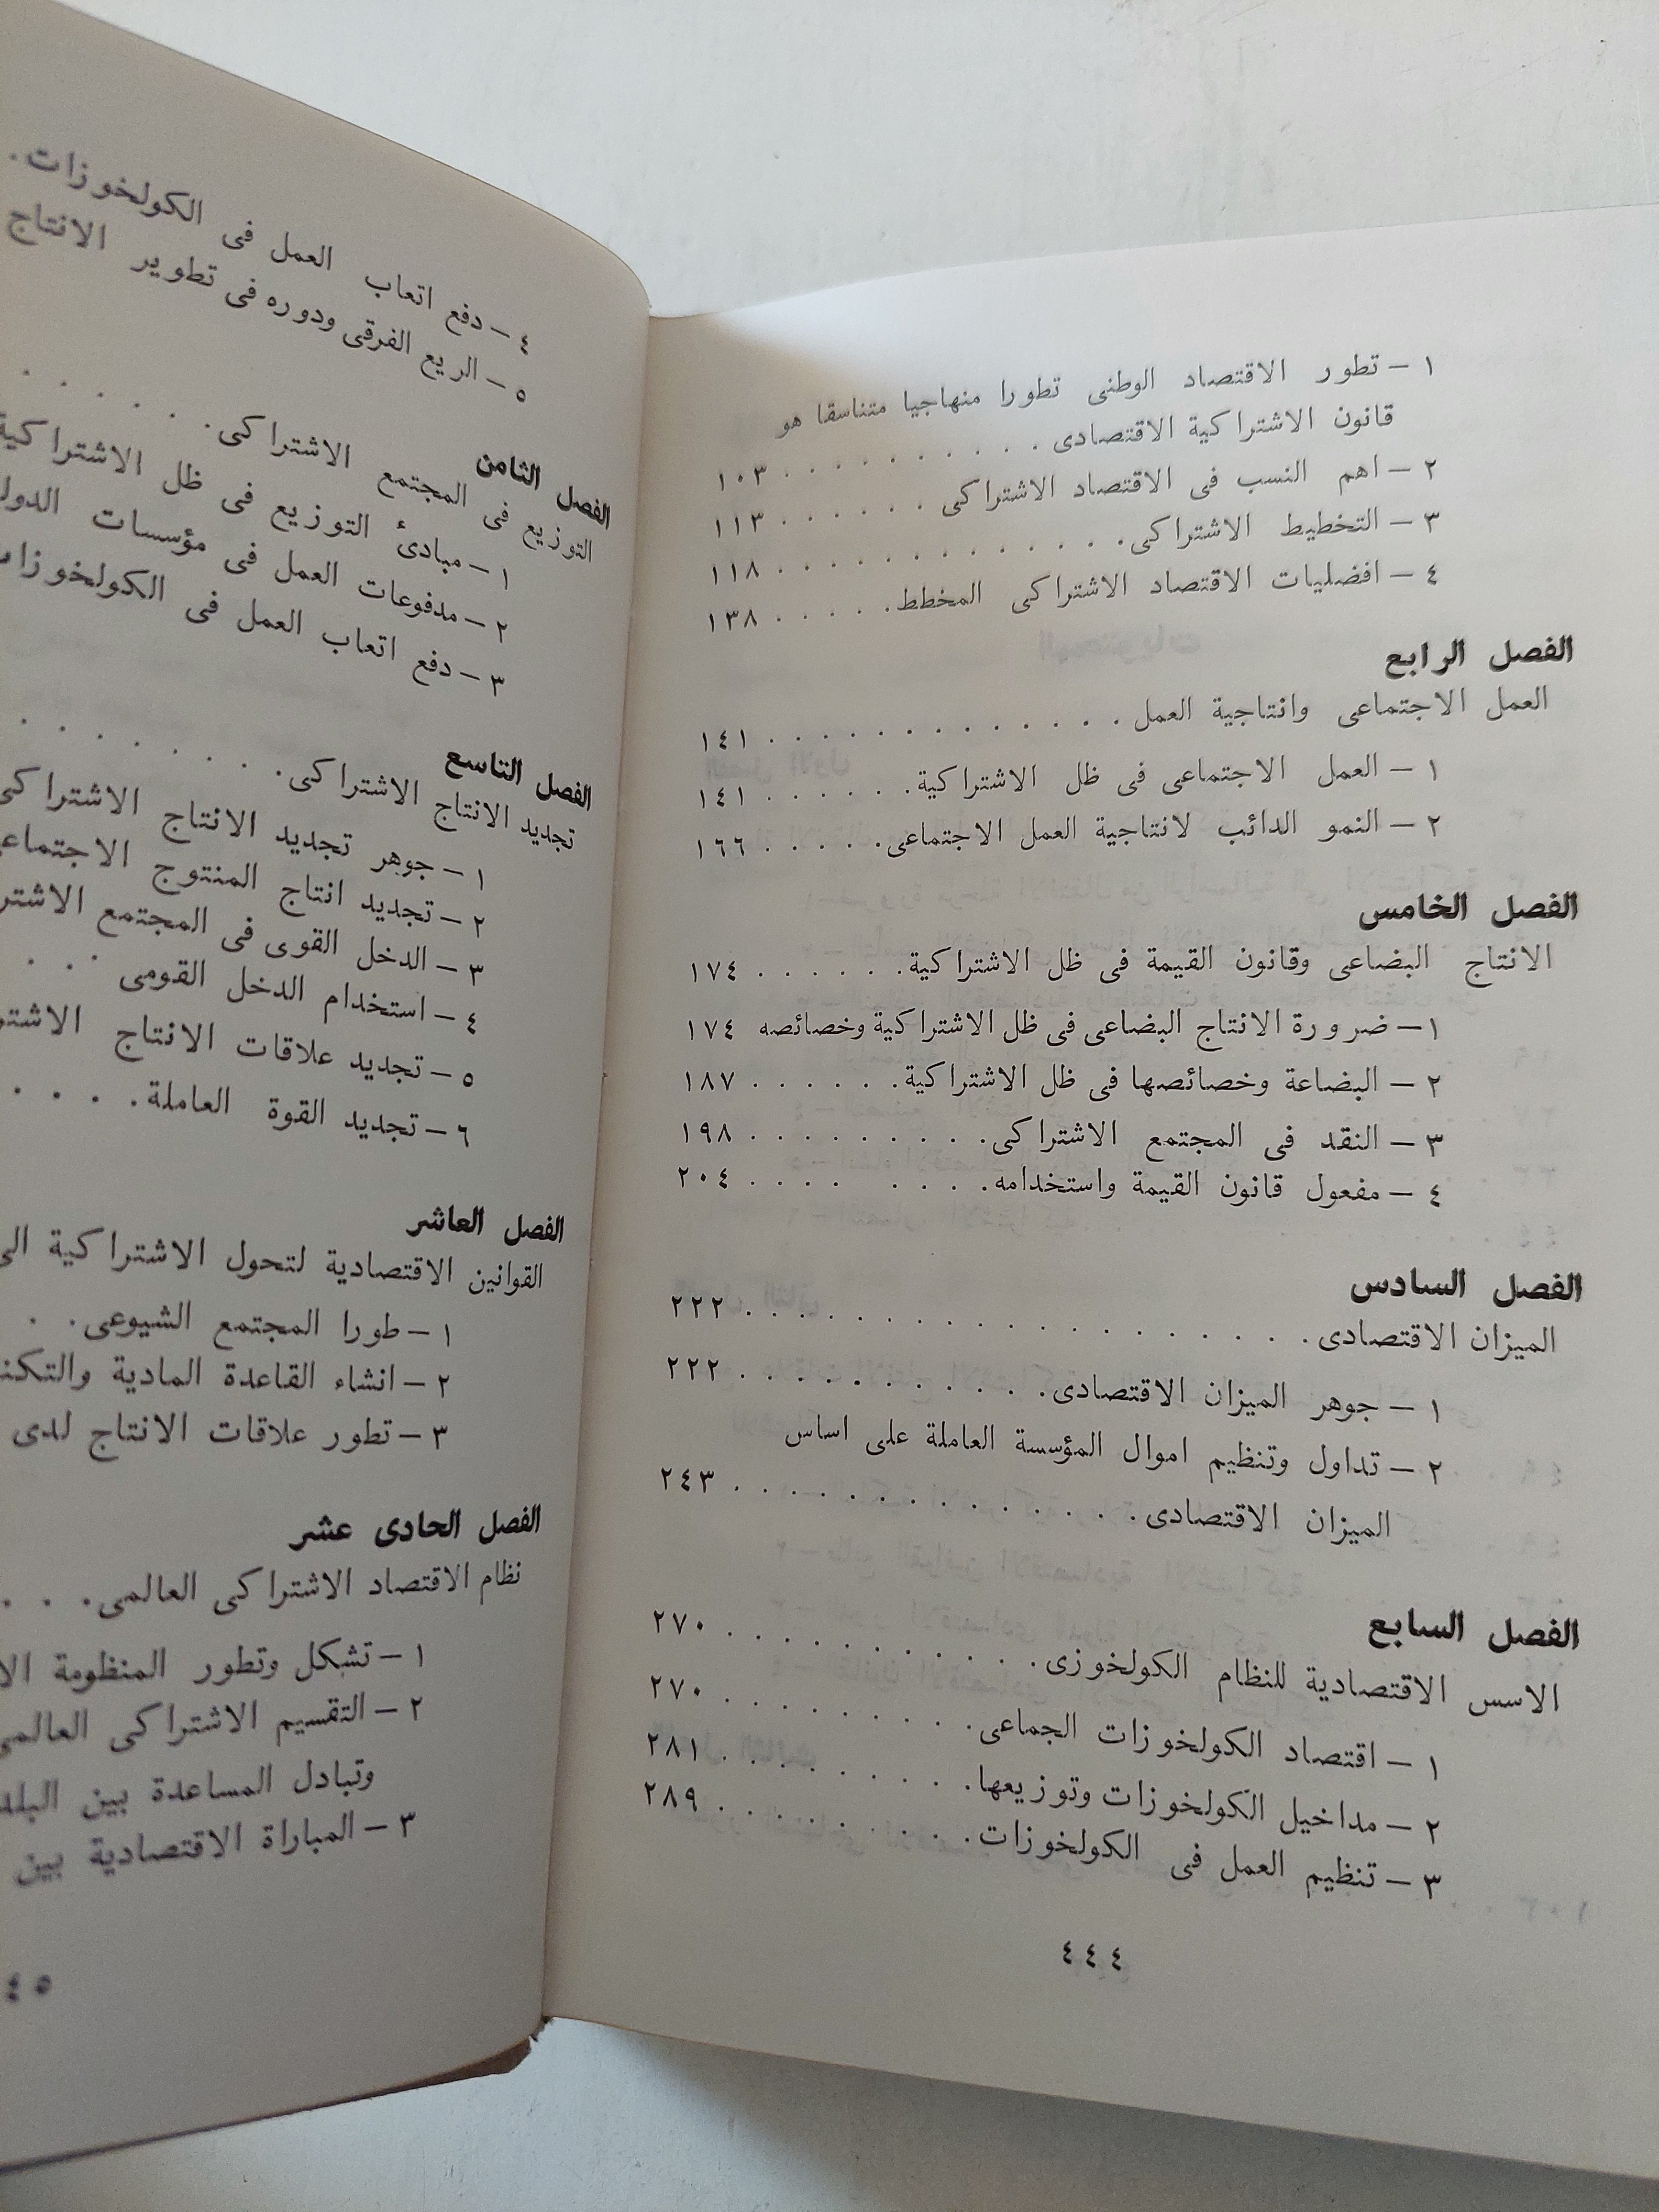 ١ – تطور الاقتصاد الوطنى تطورا منهاجيا متناسقا هو
قانون الاشتراكية الاقتصادى . . . . . . . . . . ١٠٣
٢ – اهم النسب فى الاقتصاد الاشتراكى . . . . . . ١١٣
٣ – التخطيط الاشتراكى . . . . . . . . . . . . ١١٨
٤ – افضليات الاقتصاد الاشتراكى المخطط . . . . . ١٣٨
الفصل الرابع
العمل الاجتماعى وانتاجية العمل . . . . . . . . . . . . ١٤١
١ – العمل الاجتماعى فى ظل الاشتراكية . . . . . . ١٤١
٢ – النمو الدائب لانتاجية العمل الاجتماعى . . . . . ١٦٦
الفصل الخامس
الانتاج البضاعى وقانون القيمة فى ظل الاشتراكية . . . . . . ١٧٤
١ – ضرورة الانتاج البضاعى فى ظل الاشتراكية وخصائصه ١٧٤
٢ – البضاعة وخصائصها فى ظل الاشتراكية . . . . . . ١٨٧
٣ – النقد فى المجتمع الاشتراكى . . . . . . . . . ١٩٨
٤ – مفعول قانون القيمة واستخدامه . . . . . . . . ٢٠٤
الفصل السادس
الميزان الاقتصادى . . . . . . . . . . . . . . . . . ٢٢٢
١ – جوهر الميزان الاقتصادى . . . . . . . . . . . ٢٢٢
٢ – تداول وتنظيم اموال المؤسسة العاملة على اساس
الميزان الاقتصادى . . . . . . . . . . . . ٢٤٣
الفصل السابع
الاسس الاقتصادية للنظام الكولخوزى . . . . . . . . . . ٢٧٠
١ – اقتصاد الكولخوزات الجماعى . . . . . . . . ٢٧٠
٢ – مداخيل الكولخوزات وتوزيعها . . . . . . . . ٢٨١
٣ – تنظيم العمل فى الكولخوزات . . . . . . . . ٢٨٩
٤٤٤
٤ – دفع اتعاب العمل فى الكولخوزات .
٥ – الريع الفرقى ودوره فى تطوير الانتاج
الفصل الثامن
التوزيع فى المجتمع الاشتراكى . . . . .
١ – مبادئ التوزيع فى ظل الاشتراكية
٢ – مدفوعات العمل فى مؤسسات
٣ – دفع اتعاب العمل فى
الفصل التاسع
تجديد الانتاج الاشتراكى . . . . . . . .
١ – جوهر تجديد الانتاج الاشتراكى
٢ – تجديد انتاج المنتوج
٣ – الدخل القوى فى المجتمع
٤ – استخدام الدخل القومى . . .
٥ – تجديد علاقات الانتاج
٦ – تجديد القوة العاملة . . . .
الفصل العاشر
القوانين الاقتصادية لتحول الاشتراكية
١ – طورا المجتمع الشيوعى . .
٢ – انشاء القاعدة المادية
٣ – تطور علاقات الانتاج لدى
الفصل الحادى عشر
نظام الاقتصاد الاشتراكى العالمى . . .
١ – تشكل وتطور المنظومة
٢ – التقسيم الاشتراكى العالمى
وتبادل المساعدة بين
٣ – المباراة الاقتصادية بين